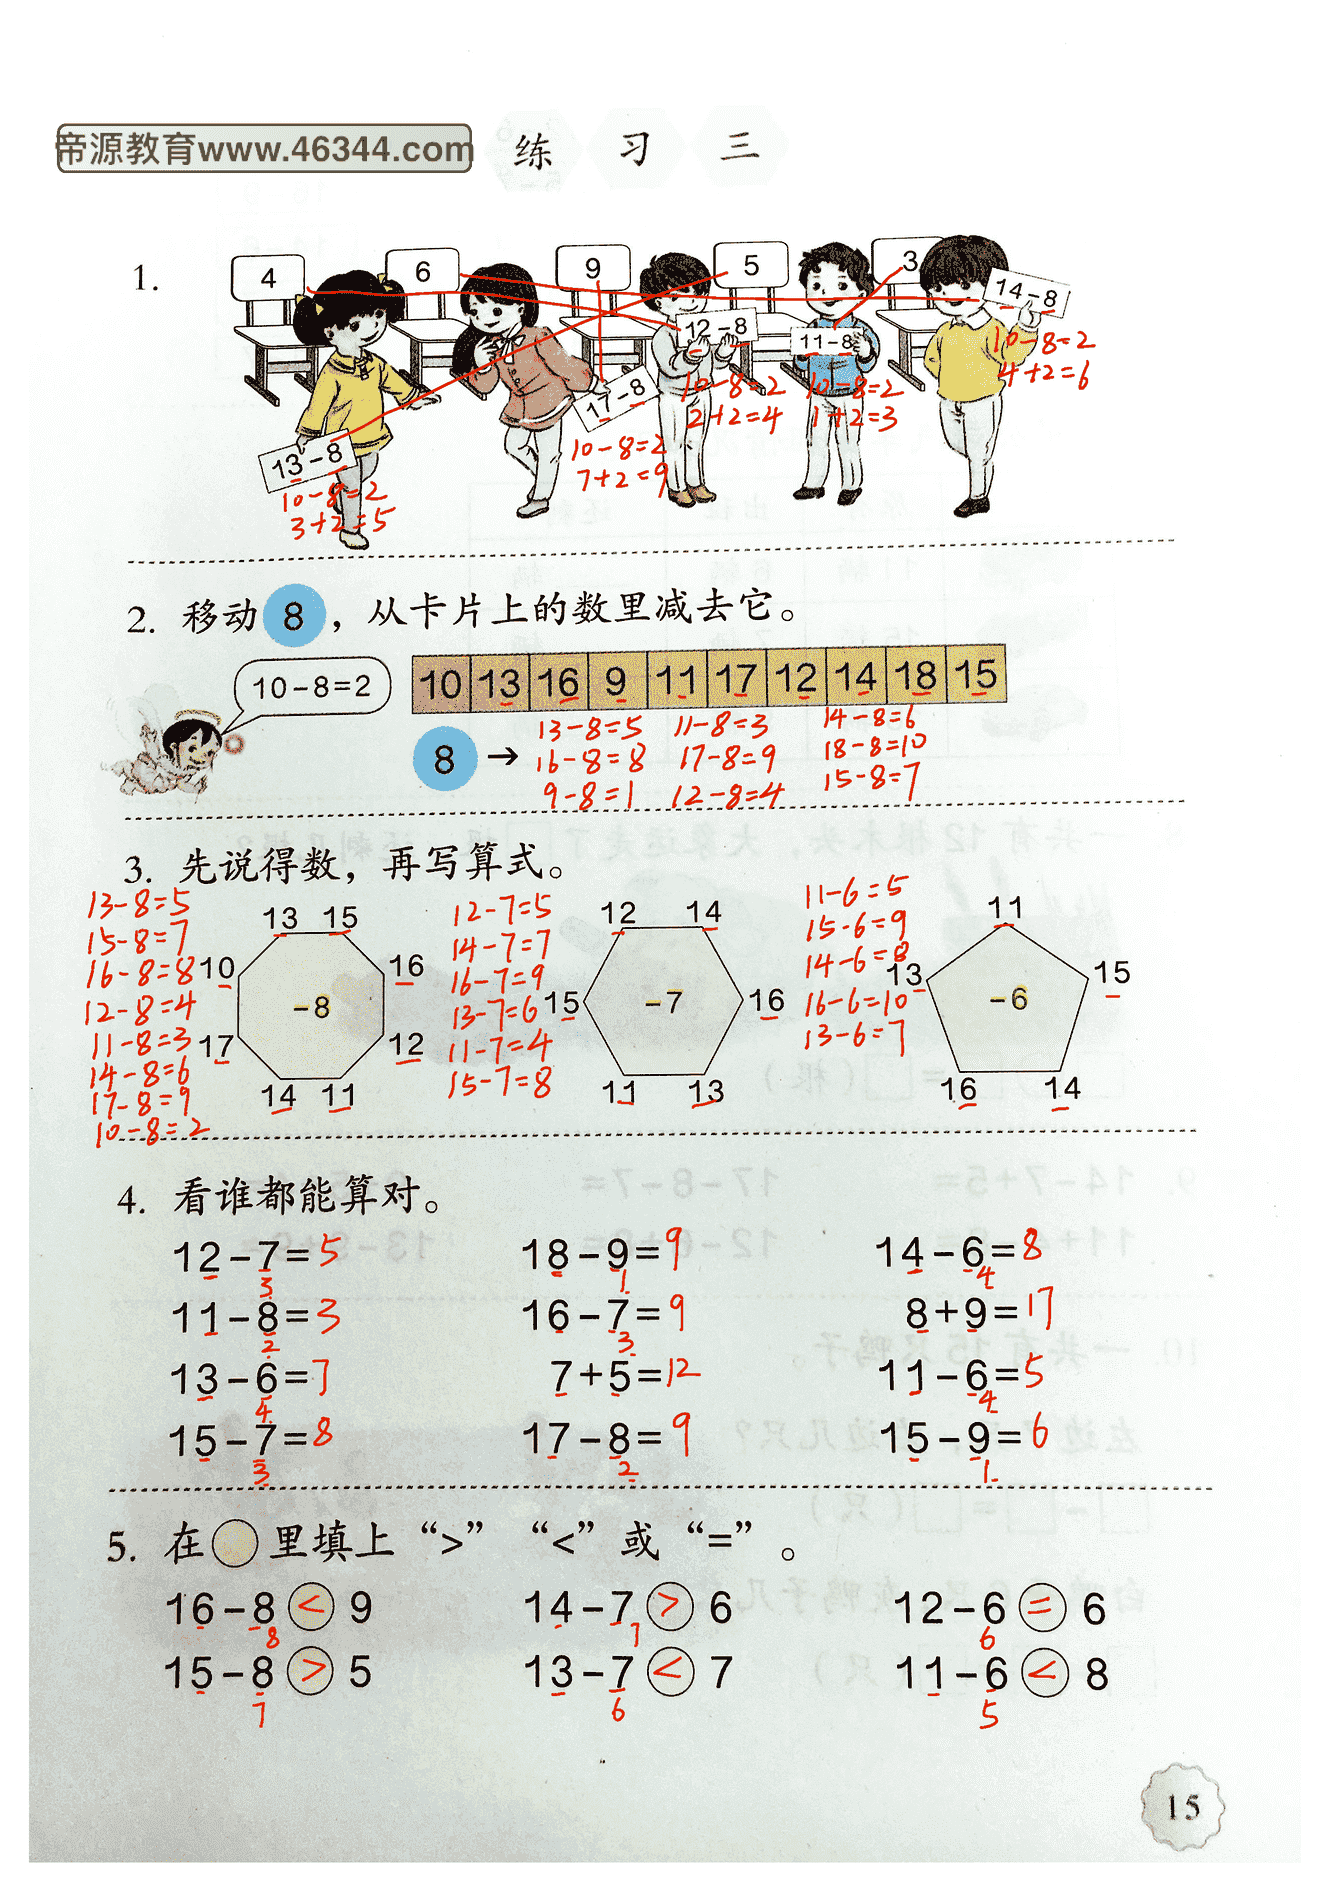 帝源教育www.46344.com
练 习 三
1.
4 6 9 5 3
13-8
10-8=2
3+2=5
17-8
10-8=2
7+2=9
12-8
10-8=2
2+2=4
11-8
10-8=2
1+2=3
14-8
10-8=2
4+2=6
2. 移动 8 ，从卡片上的数里减去它。
10-8=2
10 13 16 9 11 17 12 14 18 15
8 →
13-8=5 11-8=3 14-8=6
16-8=8 17-8=9 18-8=10
9-8=1 12-8=4 15-8=7
3. 先说得数，再写算式。
13-8=5
15-8=7
16-8=8
12-8=4
11-8=3
14-8=6
17-8=9
10-8=2
13 15
10 16
-8
17 12
14 11
12-7=5
14-7=7
16-7=9
13-7=6
11-7=4
15-7=8
12 14
15 -7 16
11 13
11-6=5
15-6=9
14-6=8
16-6=10
13-6=7
11
13 15
-6
16 14
4. 看谁都能算对。
12-7=5 18-9=9 14-6=8
3 1 4
11-8=3 16-7=9 8+9=17
2 3
13-6=7 7+5=12 11-6=5
4 4
15-7=8 17-8=9 15-9=6
3 2 1
5. 在○里填上“>”“<”或“=”。
16-8<9 14-7>6 12-6=6
8 7 6
15-8>5 13-7<7 11-6<8
7 6 5
15